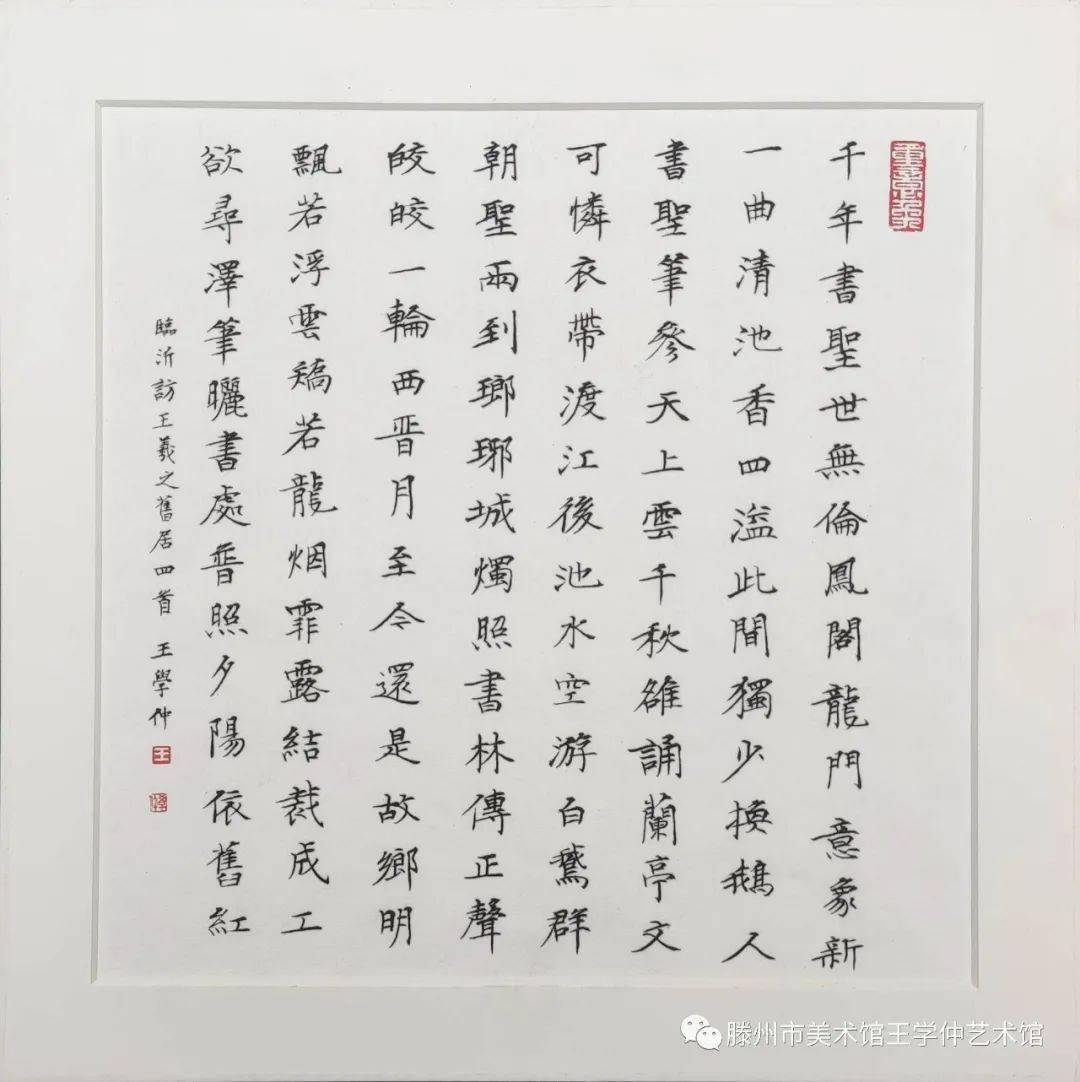 千年書聖世無倫鳳閣龍門意象新
一曲清池香四溢此間獨少換鵝人
書聖筆參天上雲千秋雒誦蘭亭文
可憐衣帶渡江後池水空游白鵞群
朝聖兩到瑯琊城燭照書林傳正聲
皎皎一輪西晉月至今還是故鄉明
飄若浮雲矯若龍烟霏露結裁成工
欲尋澤筆曬書處普照夕陽依舊紅
臨沂訪王羲之舊居四首 王學仲
王
滕州市美术馆王学仲艺术馆